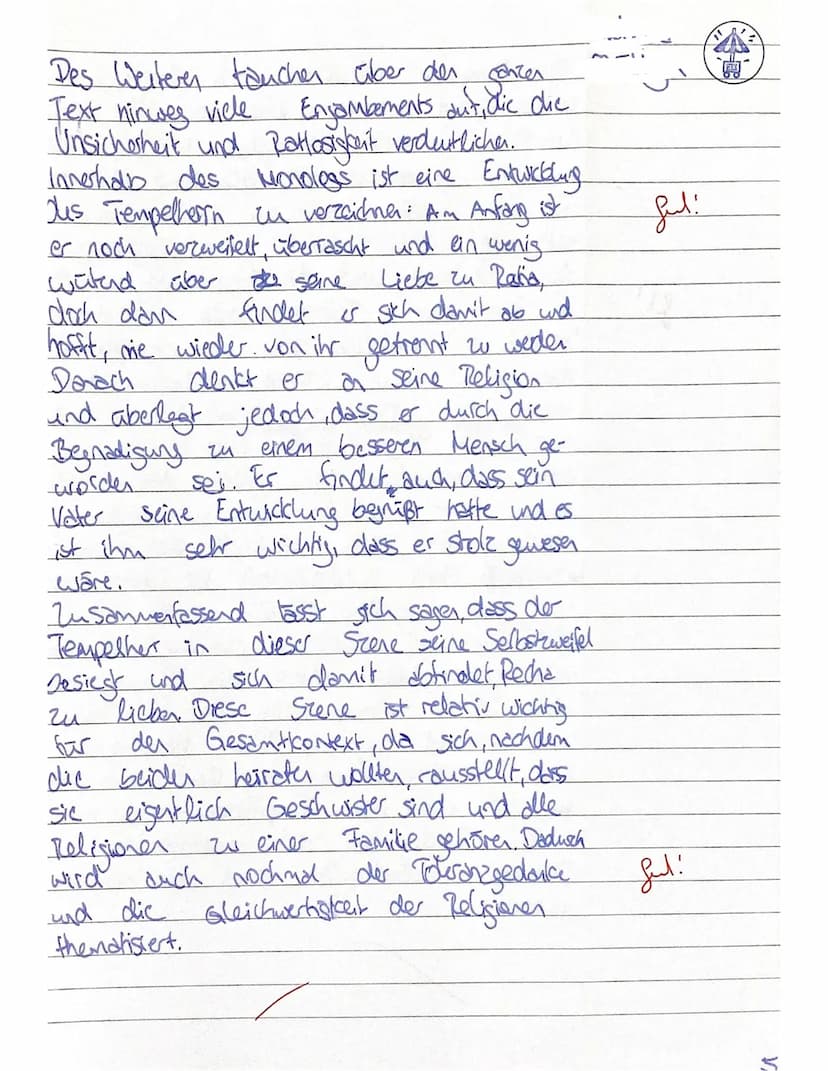 Des Weiteren tauchen über den ganzen
Text hinweg viele Enjambements auf, die die
Unsicherheit und Ratlosigkeit verdeutlichen.
Innerhalb des Monologs ist eine Entwicklung
des Tempelherrn zu verzeichnen: Am Anfang ist
gut!
er noch verzweifelt, überrascht und ein wenig
wütend über seine Liebe zu Raha,
doch dann findet er sich damit ab und
hofft, nie wieder von ihr getrennt zu werden
Danach denkt er an seine Religion
und überlegt jedoch, dass er durch die
Begnadigung zu einem besseren Mensch ge-
worden sei. Er findet auch, dass sein
Vater seine Entwicklung begrüßt hätte und es
ist ihm sehr wichtig, dass er stolz gewesen
wäre.
Zusammenfassend lässt sich sagen, dass der
Tempelherr in dieser Szene seine Selbstzweifel
besiegt und sich damit abfindet, Recha
zu lieben. Diese Szene ist relativ wichtig
für den Gesamtkontext, da sich, nachdem
die beiden heiraten wollten, rausstellt, dass
sie eigentlich Geschwister sind und alle
Religionen zu einer Familie gehören. Dadurch
wird auch nochmal der Toleranzgedanke
gut!
und die Gleichwertigkeit der Religionen
thematisiert.
5